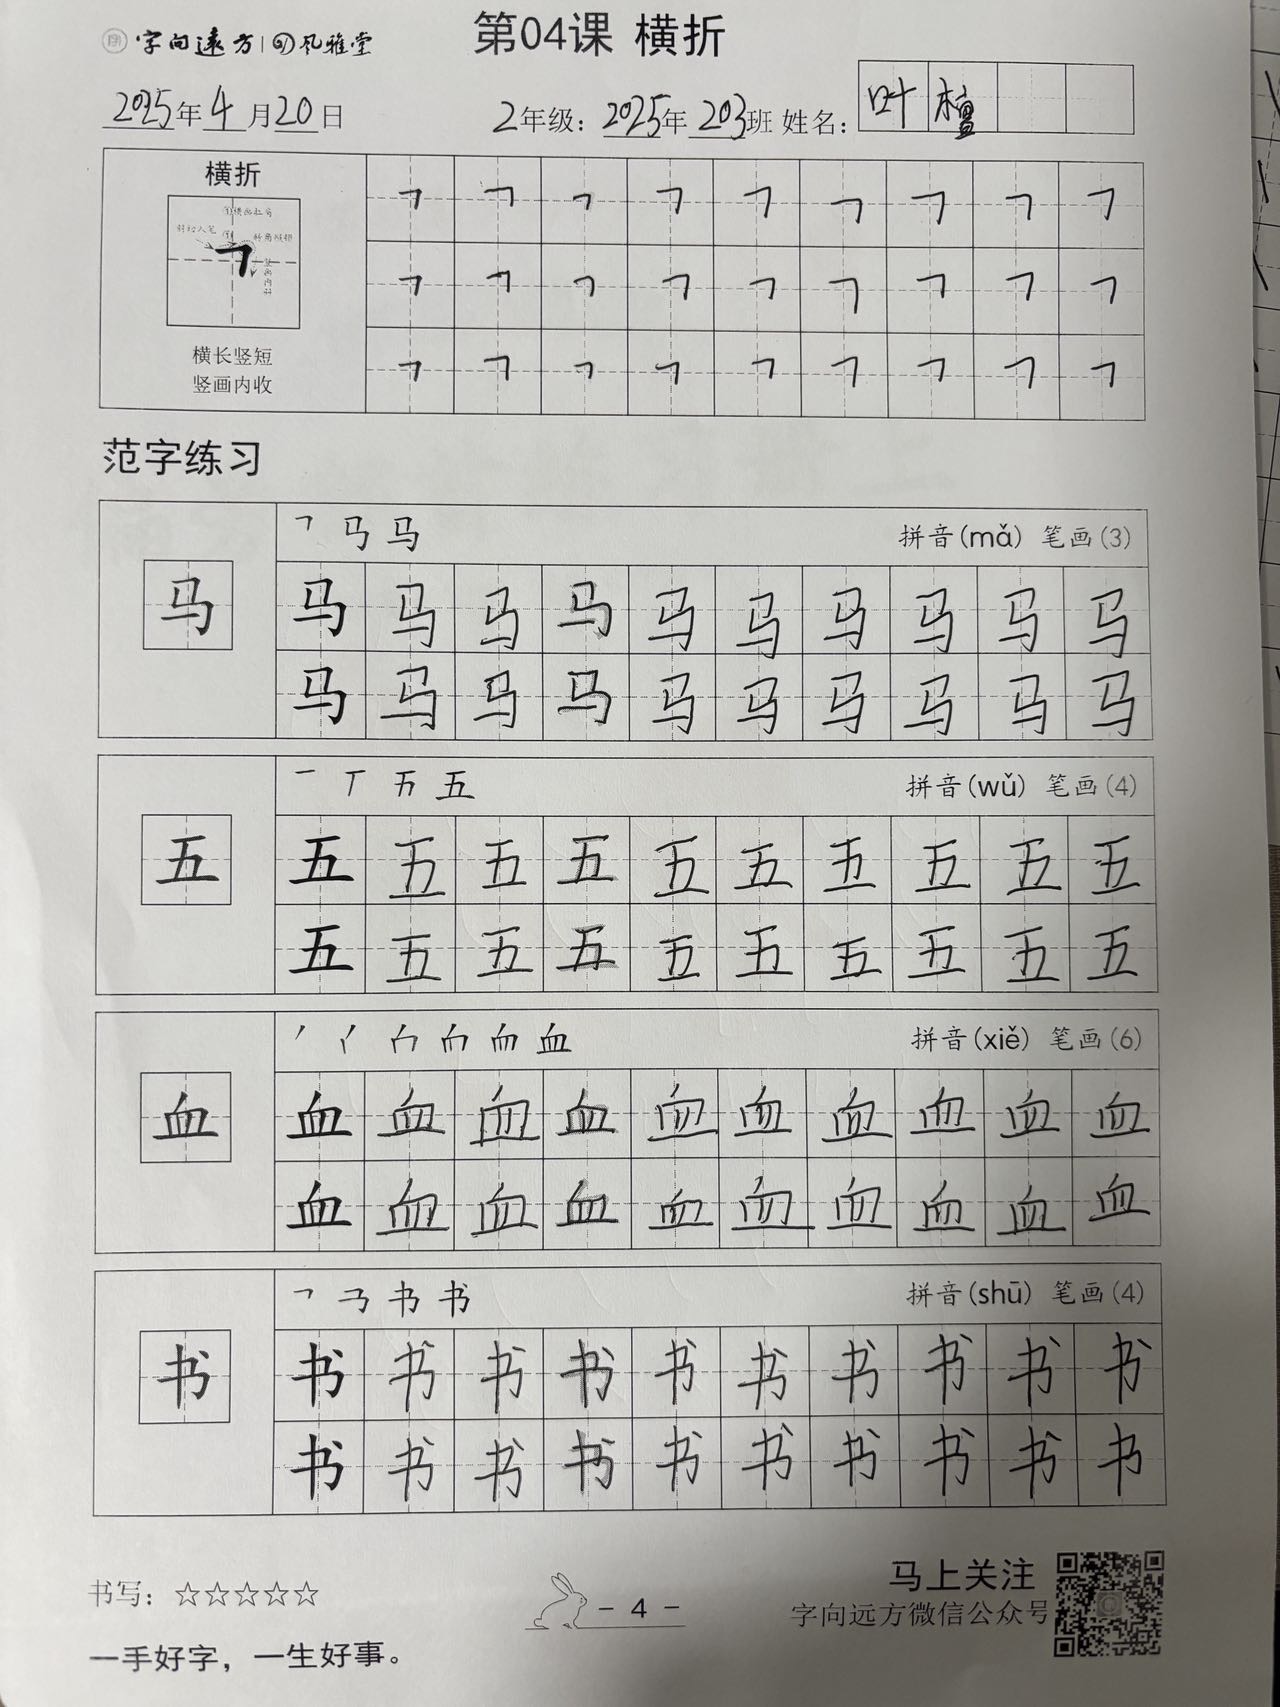 字向远方 | 风雅堂
第04课 横折
2025年4月20日
2年级：2025年203班 姓名：叶檀
横折
①横画扛肩
斜切入笔
折角顺挫
竖画内斜
横长竖短
竖画内收
㇕㇕㇕㇕㇕㇕㇕㇕㇕
㇕㇕㇕㇕㇕㇕㇕㇕㇕
㇕㇕㇕㇕㇕㇕㇕㇕㇕
范字练习
㇕ 马 拼音(mǎ) 笔画(3)
马
马马马马马马马马马马
马马马马马马马马马马
一 丆 五 拼音(wǔ) 笔画(4)
五
五五五五五五五五五五
五五五五五五五五五五
丿 血 拼音(xiě) 笔画(6)
血
血血血血血血血血血血
血血血血血血血血血血
㇕ 书 书 拼音(shū) 笔画(4)
书
书书书书书书书书书书
书书书书书书书书书书
书写：☆☆☆☆☆
一手好字，一生好事。
- 4 -
马上关注
字向远方微信公众号